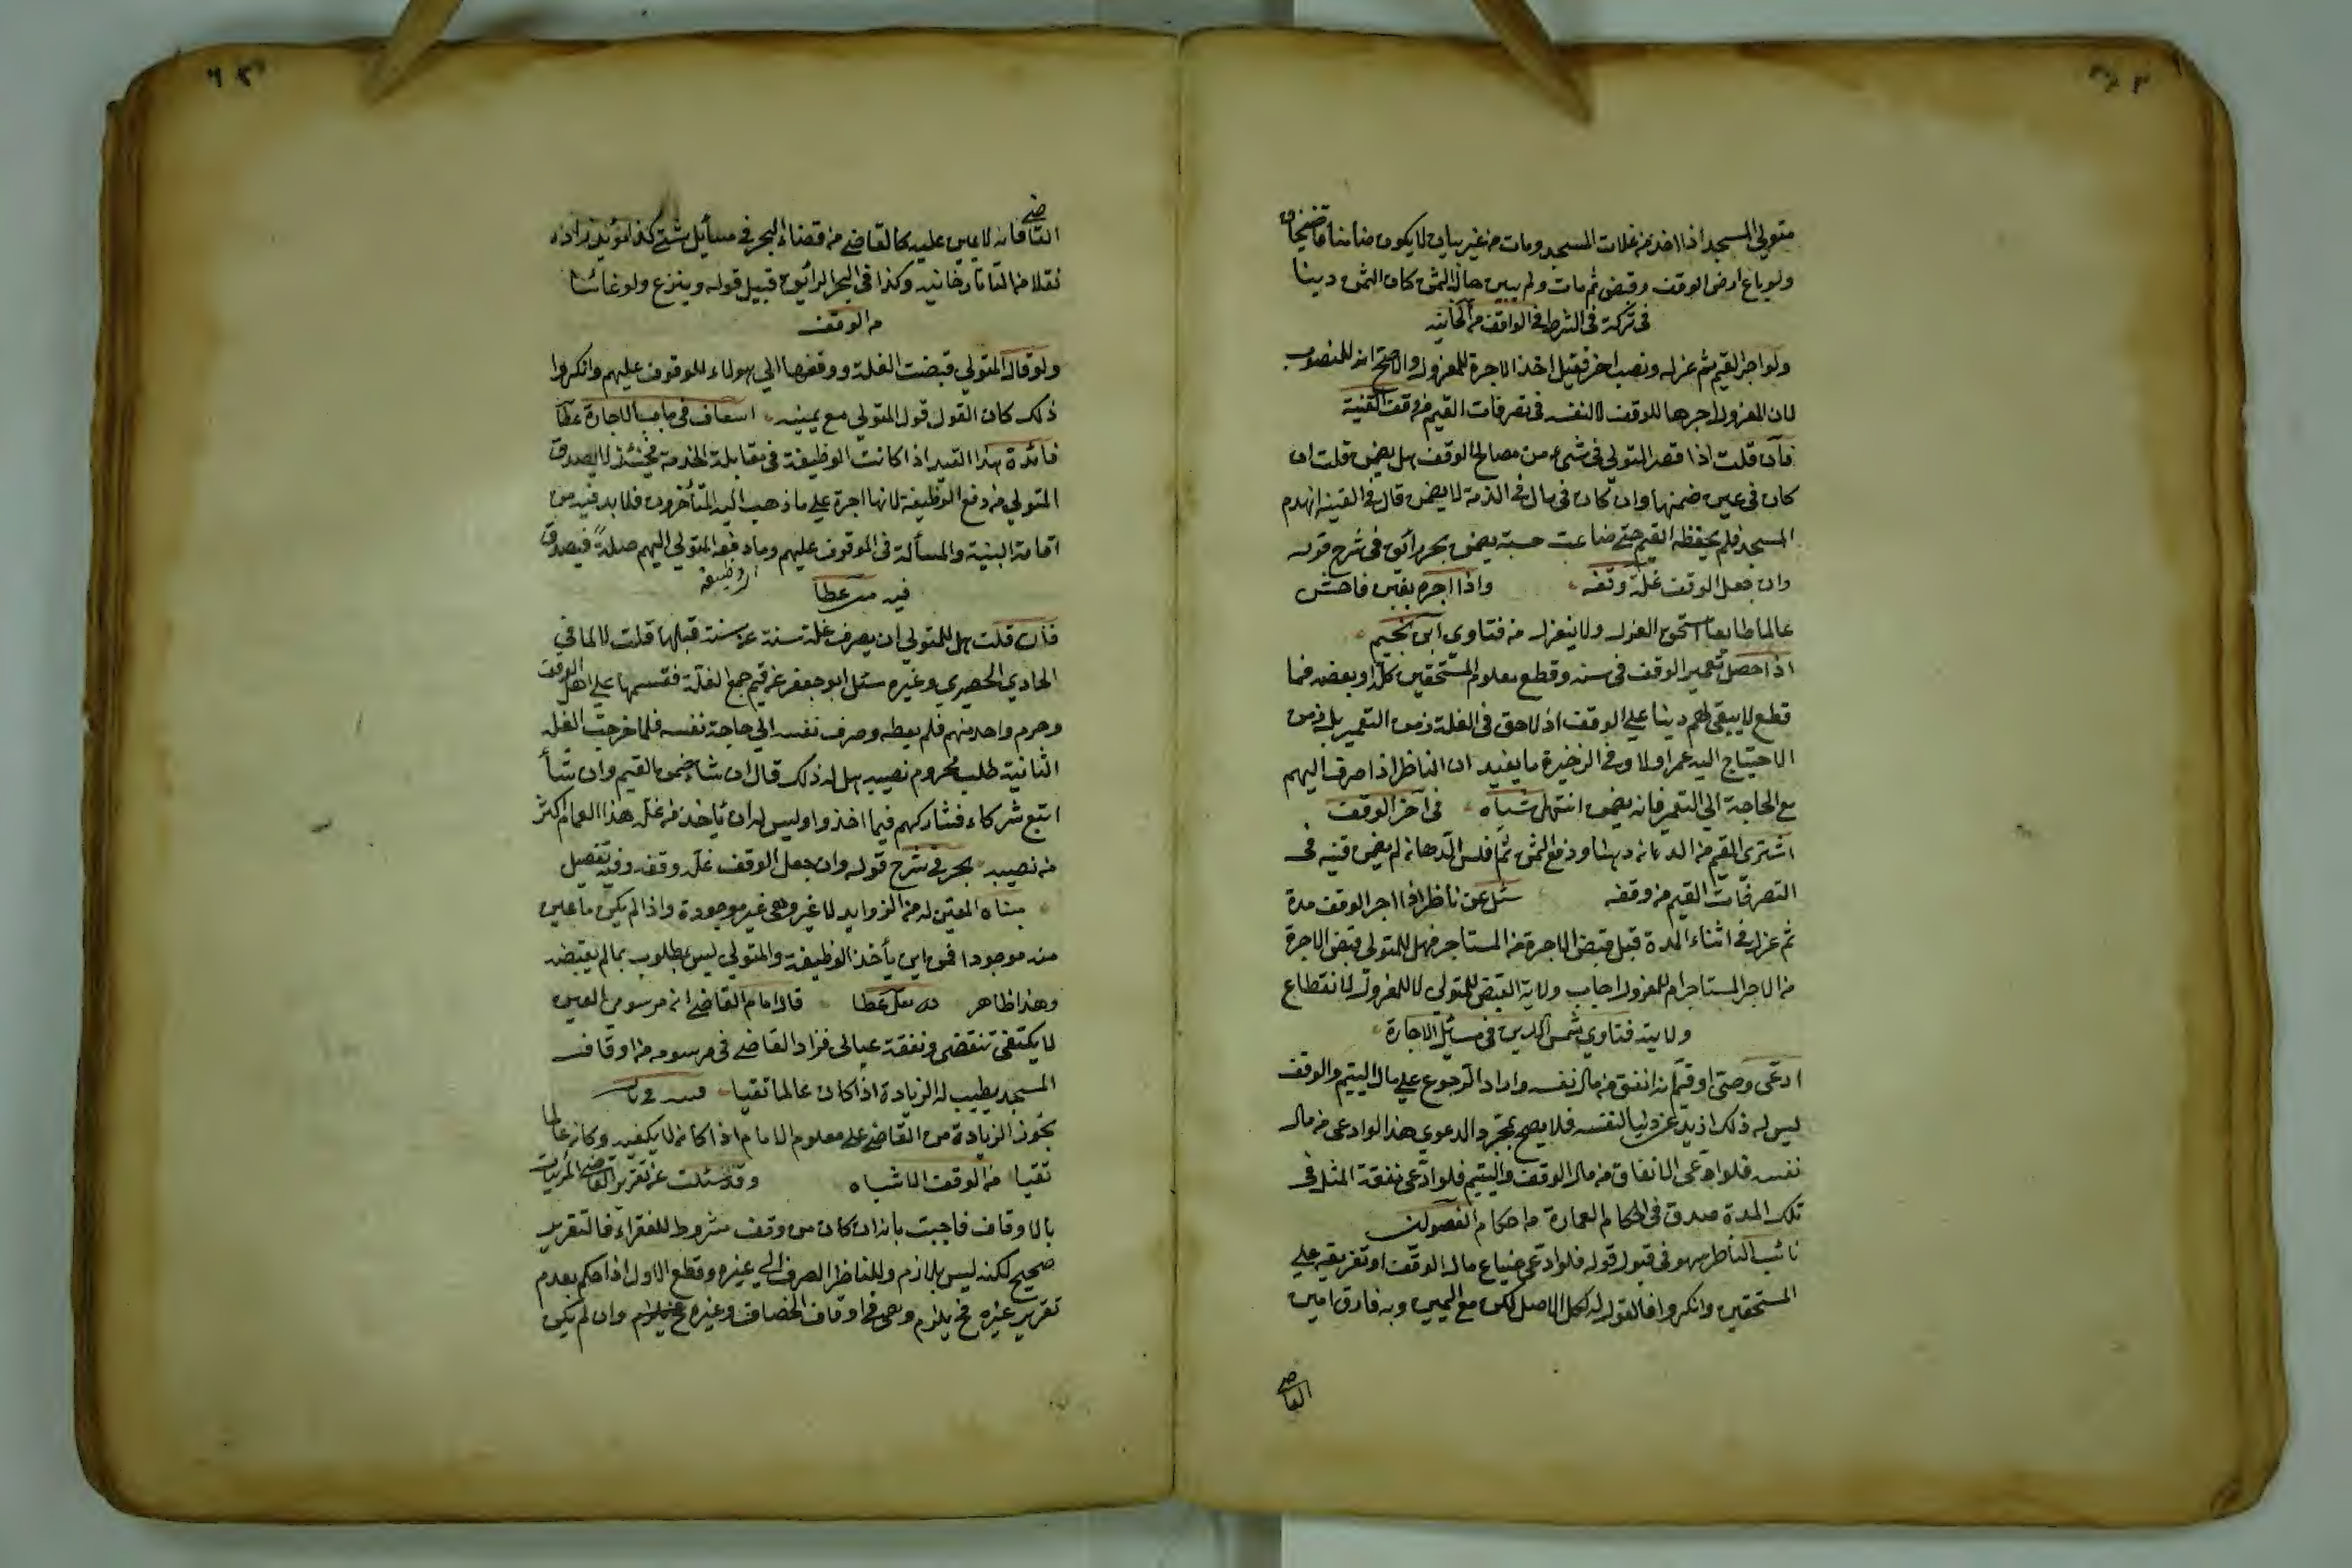 متولي المسجد اذا اخذ من غلات المسجد ومات من غير بيان لا يكون ضامنا قاضيخان
ولو باع ارض الوقف وقبض ثم مات ولم يبين حال الثمن كان الثمن دينا
في تركته في الشرط في الواقف من الخانيه
ولو اجر القيم ثم عزل ونصب اخر فقيل اخذ الاجرة للمعزول والاصح انه للمنصوب
لان المعزول اجرها للوقف لا لنفسه في تصرفات القيم من وقف القنية
فان قلت اذا قصر المتولي في شيء من مصالح الوقف هل يضمن قلت ان
كان في عين ضمنها وان كان في مال في الذمة لا يضمن قال في القينه انهدم
المسجد فلم يحفظه القيم حتى ضاعت خشبة يضمن بحر رائق في شرح قوله
وان جعل الوقف غلة وقفه واذا اجره بغبن فاحش
عالما طايعا استحق العزل ولا ينعزل من فتاوي ابن نجيم
اذا حصل تعمير الوقف في سنه وقطع معلوم المستحقين كله او بعضه فما
قطع لا يبقى لهم دينا على الوقف اذ لا حق في الغلة زمن التعمير بل زمن
الاحتياج اليه عمر اولا وفي الذخيرة ما يفيد ان الناظر اذا صرف اليهم
مع الحاجة الي التعمير فانه يضمن انتهى اشباه في آخر الوقف
اشترى القيم من الدهانه دهنا ودفع الثمن ثم افلس الدهانه لم يضمن قنيه في
التصرفات القيم من وقفه سئل عن ناظر اذا اجر الوقف مدة
ثم عزل في اثناء المدة قبل قبض الاجرة من المستاجر فهل للمتولي قبض الاجرة
من الاجر المستاجر ام للمعزول اجاب ولاية القبض للمتولي لا للمعزول لانقطاع
ولايته فتاوي شمس الدين في مسئل الاجارة
ادعى وصى او قيم انه انفق من مال نفسه واراد الرجوع على مال اليتيم والوقف
ليس له ذلك اذ يدعي دينا لنفسه فلا يصح بمجرد الدعوي هذا لو ادعى من مال
نفسه فلو ادعى الانفاق من مال الوقف واليتيم فلو ادعى نفقة المثل في
تلك المدة صدق في احكام العمارة من احكام الفصولين
نائب الناظر هو في قبول قوله فلو ادعى ضياع مال الوقف او تفريقه على
المستحقين وانكروا فالقول له كالاصل لكن مع اليمين وبه فارق امين
القاضي
القاضي فانه لا يمين عليه كالقاضي من قضاء البحر في مسائل شتى كذا مؤيد زاده
نقلا من التاتارخانيه وكذا في البحر الرائق قبيل قوله وينزع ولو خائنا
من الوقف
ولو قال المتولي قبضت الغلة ودفعها الي هولاء للوقوف عليهم وانكروا
ذلك كان القول قول المتولي مع يمينه اسعاف في باب الاجارة عطا
فائدة هذا القيد اذا كانت الوظيفة في مقابلة الخدمة فحينئذ لا يصدق
المتولي في دفع الوظيفة لانها اجرة على ما ذهب اليه المتأخرون فلا بد فيه من
اقامة البينة والمسألة في الموقوف عليهم وما دفعه المتولي اليهم صلة فيصدق
فيه عطا
فان قلت هل للمتولي ان يصرف غلة سنة عن سنة قبلها قلت لا لما في
الحادي الحصيري وغيره سئل ابو جعفر عن قيم جمع الغلة فقسمها على اهل الوقف
وحرم واحد منهم فلم يعطه وصرف نفسه الي حاجة نفسه فلما خرجت الغله
الثانية طلب محروم نصيبه هل له ذلك قال ان شاء ضمن القيم وان شأ
اتبع شركاءه فشاركهم فيما اخذوا وليس له ان يأخذ من غلة هذا العام اكثر
من نصيبه بحر في شرح قوله وان جعل الوقف غلة وقفه وفيه تفصيل
مبناه المعين له من الزوايد لا غير وهي غير موجودة واذا لم يكن ما عين
منه موجودا فمن اين يأخذ الوظيفة والمتولي ليس بمطلوب بما لم يقبضه
وهذا ظاهر عطا قال امام القاضي ان مرسومي المعين
لا يكتفي نفقتي ونفقة عيالى فزاد القاضي في مرسومه من اوقاف
المسجد يطيب له الزيادة اذا كان عالما تقيا
تجوز الزيادة من القاضي على معلوم الامام اذا كانه لا يكفيه وكانه عالما
تقيا من الوقف الاشباه وقد سئلت عن تقرير القاضي المرتبات
بالاوقاف فاجبت بانه ان كان من وقف مشروط للفقراء فالتقرير
صحيح لكنه ليس بلازم وللناظر الصرف الي غيره وقطع الاول اذا حكم بعدم
تقرير غيره فح يلزم وهي في اوقاف الخصاف وغيره وان لم يكن